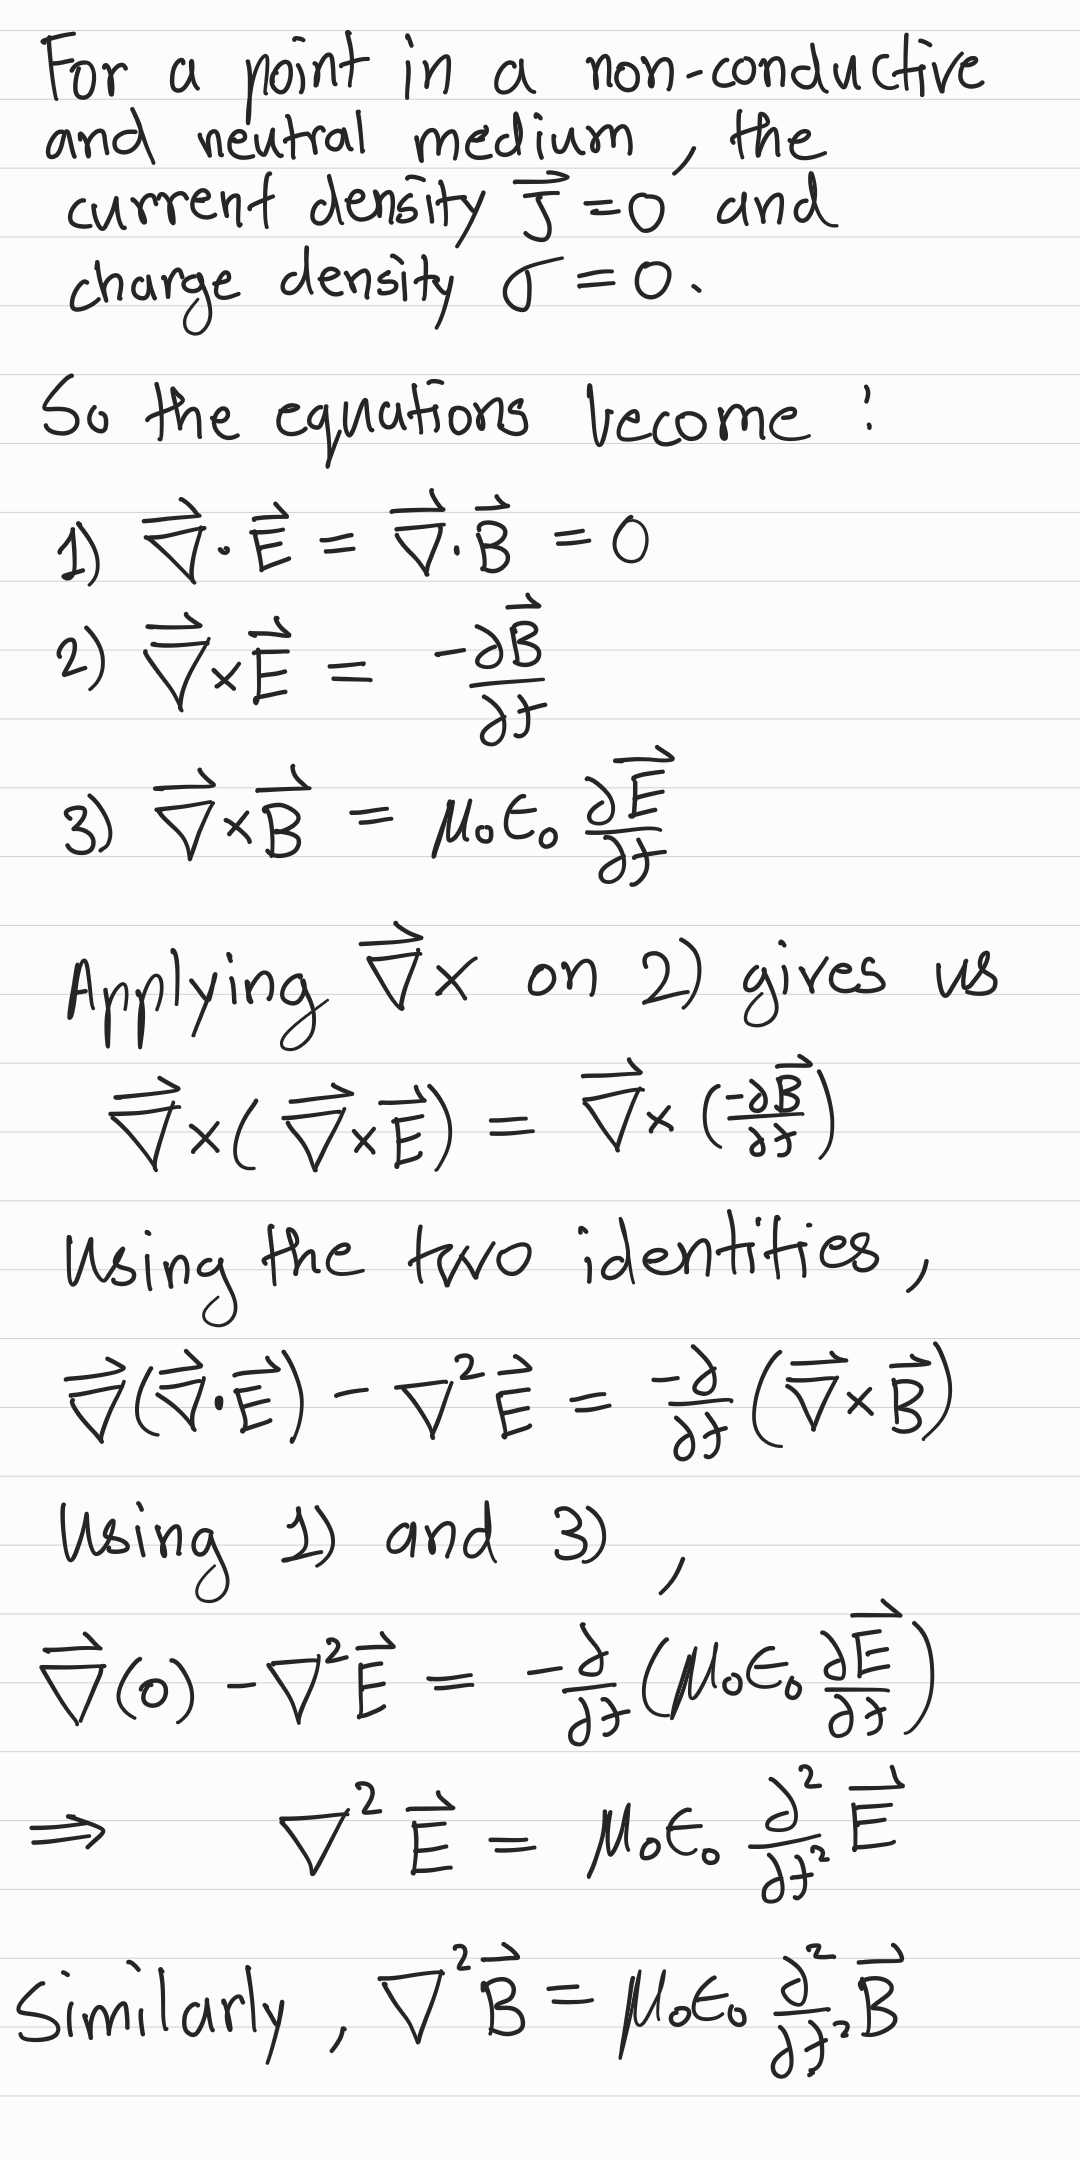 For a point in a non-conductive
and neutral medium, the
current density $\vec{J} = 0$ and
charge density $\sigma = 0$.
So the equations become:
1) $\vec{\nabla} \cdot \vec{E} = \vec{\nabla} \cdot \vec{B} = 0$
2) $\vec{\nabla} \times \vec{E} = \frac{-\partial \vec{B}}{\partial t}$
3) $\vec{\nabla} \times \vec{B} = \mu_0 \epsilon_0 \frac{\partial \vec{E}}{\partial t}$
Applying $\vec{\nabla} \times$ on 2) gives us
$\vec{\nabla} \times (\vec{\nabla} \times \vec{E}) = \vec{\nabla} \times (\frac{-\partial \vec{B}}{\partial t})$
Using the two identities,
$\vec{\nabla}(\vec{\nabla} \cdot \vec{E}) - \nabla^2 \vec{E} = \frac{-\partial}{\partial t}(\vec{\nabla} \times \vec{B})$
Using 1) and 3),
$\vec{\nabla}(0) - \nabla^2 \vec{E} = -\frac{\partial}{\partial t}(\mu_0 \epsilon_0 \frac{\partial \vec{E}}{\partial t})$
$\Rightarrow \nabla^2 \vec{E} = \mu_0 \epsilon_0 \frac{\partial^2}{\partial t^2} \vec{E}$
Similarly, $\nabla^2 \vec{B} = \mu_0 \epsilon_0 \frac{\partial^2}{\partial t^2} \vec{B}$